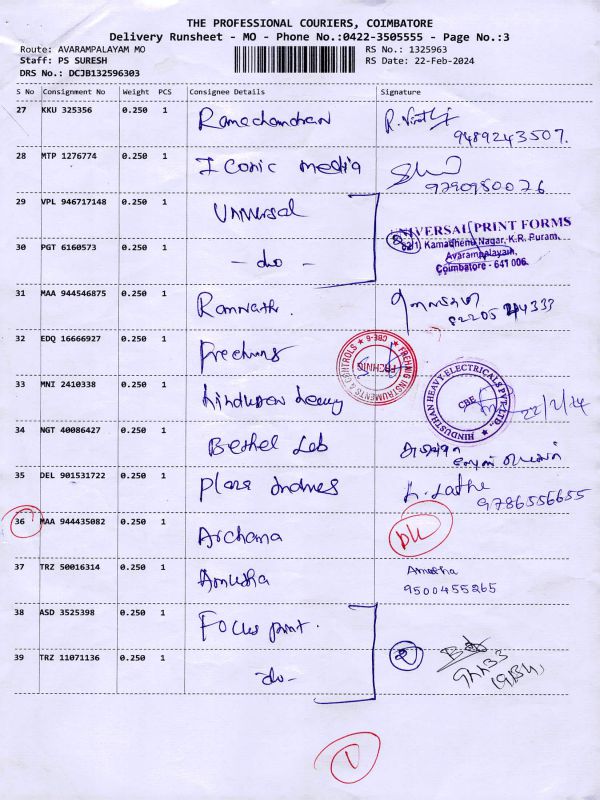 THE PROFESSIONAL COURIERS, COIMBATORE
Delivery Runsheet - MO - Phone No.:0422-3505555 - Page No.:3
Route: AVARAMPALAYAM MO
RS No.: 1325963
Staff: PS SURESH
RS Date: 22-Feb-2024
DRS No.: DCJB132596303
S No Consignment No Weight PCS Consignee Details Signature
27 KKU 325356 0.250 1 Ramachandran
9489243507.
28 MTP 1276774 0.250 1 Iconic media
9790980026
29 VPL 946717148 0.250 1 Universal
UNIVERSAL PRINT FORMS
Kamadhenu Nagar, K.R. Puram,
Avarampalayam,
Coimbatore - 641 006.
30 PGT 6160573 0.250 1 - do -
31 MAA 944546875 0.250 1 Ramnath.
32 EDQ 16666927 0.250 1 Frechns
FREHNIG INSTRUMENTS & CONTROLS ★ CBE-6 ★
33 MNI 2410338 0.250 1 hindusthan heavy
HINDUSTHAN HEAVY ELECTRICALS PVT. LTD. ★
CBE
22/2/24
34 NGT 40086427 0.250 1 Bethel Lab
35 DEL 901531722 0.250 1
9786556655
36 MAA 944435082 0.250 1 Archana
DL
37 TRZ 50016314 0.250 1 Anusha
Anusha
9500455265
38 ASD 3525398 0.250 1 Focus print.
2
39 TRZ 11071136 0.250 1 -do-
1